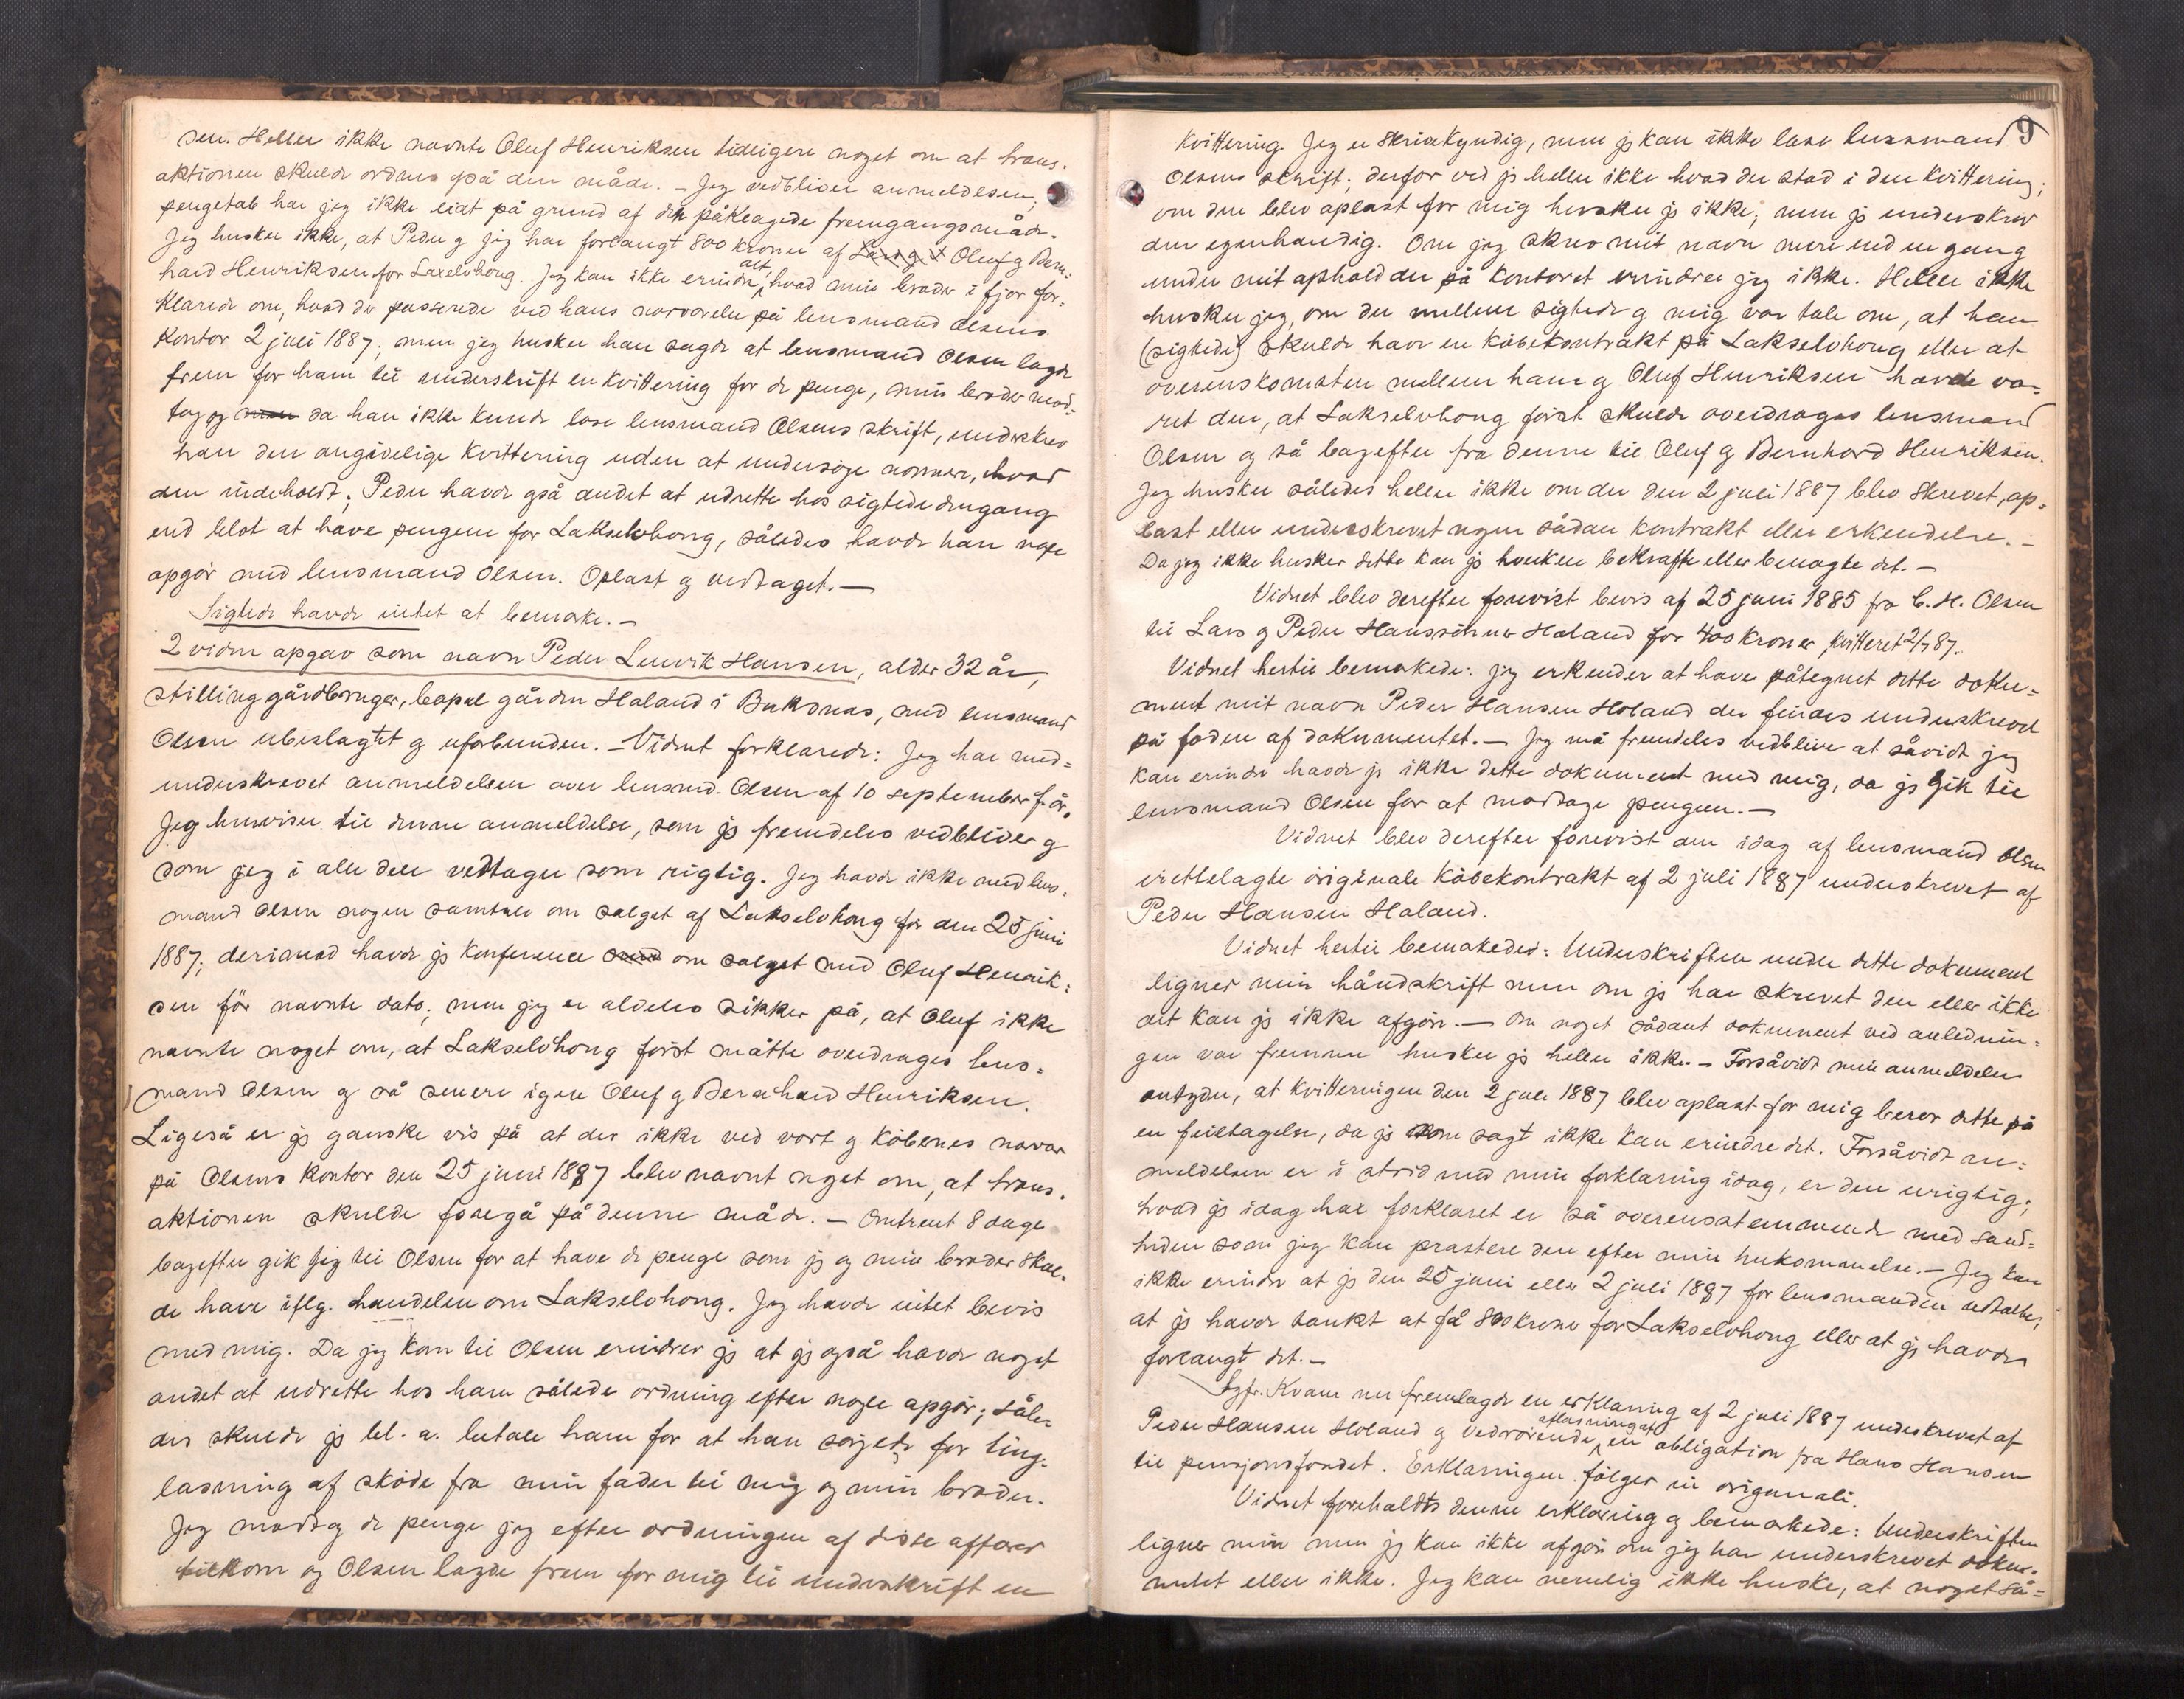 sen. Heller ikke nævnte Oluf Henriksen tidligere noget om at trans-
aktionen skulde ordnes på den måde. – Jeg vedbliver anmeldelsen;
pengetab har jeg ikke lidt på grund af den påklagede fremgangsmåde.
Jeg husker ikke, at Peder og jeg har forlangt 800 kroner af Oluf og Bern-
hard Henriksen for Laxelvhong. Jeg kan ikke erindre alt, hvad min broder i fjor for-
klarede om, hvad der passerede ved hans nærværelse på lensmand Olsens
kontor 2 juli 1887; men jeg husker han sagde at lensmand Olsen lagde
frem for ham til underskrift en kvittering for de penge, min broder mod-
tog og da han ikke kunde læse lensmand Olsens skrift, underskrev
han den angivelige kvittering uden at undersøge nærmere, hvad
den indeholdt; Peder havde også andet at udrette hos sigtede dengang
end blot at hæve pengene for Lakselvhong, således havde han nogle
opgør med lensmand Olsen. Oplæst og vedtaget. —
Sigtede havde intet at bemærke. –
2 vidne opgav som navn Peder Lenvik Hansen, alder 32 år,
stilling gårdbruger, bopæl gården Haland i Buksnæs, med lensmand
Olsen ubeslægtet og uforbunden. – Vidnet forklarede: Jeg har med-
underskrevet anmeldelsen over lensmd. Olsen af 10 september f. år.
Jeg henviser til denne anmeldelse, som jeg fremdeles vedbliver og
som jeg i alle dele vedtager som rigtig. Jeg havde ikke med lens-
mand Olsen nogen samtale om salget af Lakselvhong før den 25 juni
1887; derimod havde jeg konference om salget med Oluf Henrik-
sen før nævnte dato; men jeg er aldeles sikker på, at Oluf ikke
nævnte noget om, at Lakselvhong først måtte overdrages lens-
mand Olsen og så senere igen Oluf og Bernhard Henriksen.
Ligeså er jeg ganske vis på at der ikke ved vort og købernes nærvær
på Olsens kontor den 25 juni 1887 blev nævnt noget om, at trans-
aktionen skulde foregå på denne måde. – Omtrent 8 dage
bagefter gik jeg til Olsen for at hæve de penge som jeg og min broder skul-
de have iflg. handelen om Lakselvhong. Jeg havde intet bevis
med mig. Da jeg kom til Olsen erindrer jeg at jeg også havde noget
andet at udrette hos ham således ordning efter nogle opgør; såle-
des skulde jeg bl. a. betale ham for at han sørgede for ting-
læsning af skøde fra min fader til mig og min broder.
Jeg modtog de penge jeg efter ordningen af disse affærer
tilkom og Olsen lagde frem for mig til underskrift en
9
kvittering. Jeg er skrivekyndig, men jeg kan ikke læse lensmand
Olsens skrift; derfor ved jeg heller ikke hvad der stod i den kvittering;
om den blev oplæst for mig husker jeg ikke; men jeg underskrev
den egenhændig. Om jeg skrev mit navn mere end en gang
under mit ophold der på kontoret erindrer jeg ikke. Heller ikke
husker jeg, om der mellem sigtede og mig var tale om, at han
(sigtede) skulde have en købekontrakt på Lakselvhong eller at
overenskomsten mellem ham og Oluf Henriksen havde væ-
ret den, at Lakselvhong først skulde overdrages lensmand
Olsen og så bagefter fra denne til Oluf og Bernhard Henriksen.
Jeg husker således heller ikke om der den 2 juli 1887 blev skrevet, op-
læst eller underskrevet nogen sådan kontrakt eller erkendelse. –
Da jeg ikke husker dette kan jeg hverken bekræfte eller benægte det. –
Vidnet blev derefter forevist bevis af 25 juni 1885 fra C. H. Olsen
til Lars og Peder Hanssønner Haland for 400 kroner, kvitteret 2/7 87.
Vidnet hertil bemærkede: Jeg erkender at have påtegnet dette doku-
ment mit navn Peder Hansen Holand der findes underskrevet
på foden af dokumentet. – Jeg må fremdeles vedblive at såvidt jeg
kan erindre havde jeg ikke dette dokument med mig, da jeg gik til
lensmand Olsen for at modtage pengene. –
Vidnet blev derefter forevist den idag af lensmand Olsen
irettelagte originale købekontrakt af 2 juli 1887 underskrevet af
Peder Hansen Haland.
Vidnet hertil bemærkedes: Underskriften under dette dokument
ligner min håndskrift men om jeg har skrevet den eller ikke
det kan jeg ikke afgøre. — Om noget sådant dokument ved anlednin-
gen var fremme husker jeg heller ikke. – Forsåvidt min anmeldelse
antyder, at kvitteringen den 2 juli 1887 blev oplæst for mig beror dette på
en feiltagelse, da jeg som sagt ikke kan erindre det. Forsåvidt an-
meldelsen er i strid med min forklaring idag, er den urigtig;
hvad jeg idag har forklaret er så overensstemmende med sand-
heden som jeg kan præstere den efter min hukommelse. – Jeg kan
ikke erindre at jeg den 25 juni eller 2 juli 1887 for lensmanden udtalte,
at jeg havde tænkt at få 800 kroner for Lakselvhong eller at jeg havde
forlangt det. –
Sgfr. Kvam nu fremlagde en erklæring af 2 juli 1887 underskrevet af
Peder Hansen Holand og vedrørende aflæsning af en obligation fra Hans Hansen
til pensjonsfondet. Erklæringen følger in originali.
Vidnet foreholdtes denne erklæring og bemærkede: Underskriften
ligner min men jeg kan ikke afgøre om jeg har underskrevet doku-
mentet eller ikke. Jeg kan nemlig ikke huske, at noget så-